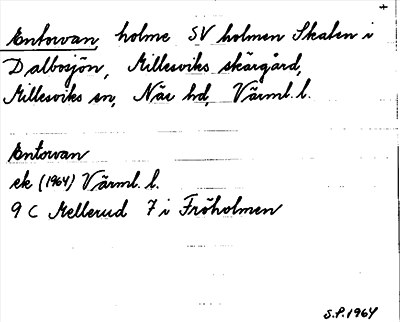 Entorvan, holme SV holmen Skaten i
Dalbosjön, Millesviks skärgård,
Millesviks sn, Näs hd, Värml. l.
Entorvan
ek (1964) Värml. l.
9 C Mellerud 7 i Fröholmen
S.P. 1964